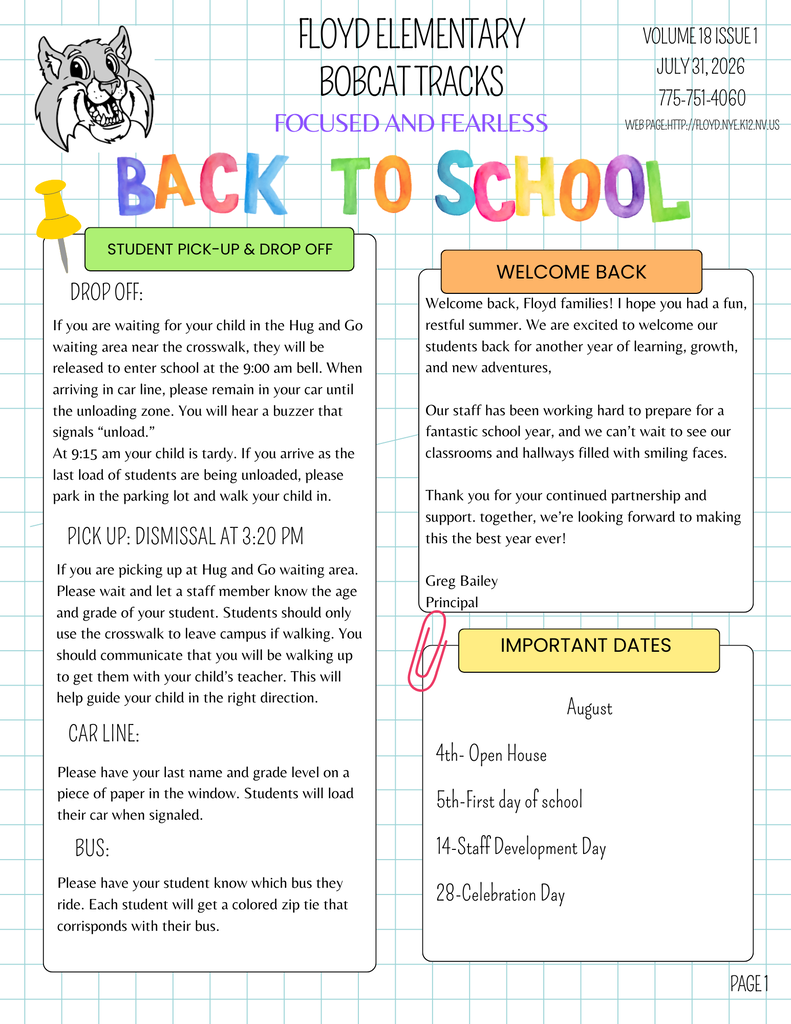 FLOYD ELEMENTARY
BOBCAT TRACKS
FOCUSED AND FEARLESS
VOLUME 18 ISSUE 1
JULY 31, 2026
775-751-4060
WEB PAGE:HTTP://FLOYD.NYE.K12.NV.US
BACK TO SCHOOL
STUDENT PICK-UP & DROP OFF
DROP OFF:
If you are waiting for your child in the Hug and Go
waiting area near the crosswalk, they will be
released to enter school at the 9:00 am bell. When
arriving in car line, please remain in your car until
the unloading zone. You will hear a buzzer that
signals “unload.”
At 9:15 am your child is tardy. If you arrive as the
last load of students are being unloaded, please
park in the parking lot and walk your child in.
PICK UP: DISMISSAL AT 3:20 PM
If you are picking up at Hug and Go waiting area.
Please wait and let a staff member know the age
and grade of your student. Students should only
use the crosswalk to leave campus if walking. You
should communicate that you will be walking up
to get them with your child’s teacher. This will
help guide your child in the right direction.
CAR LINE:
Please have your last name and grade level on a
piece of paper in the window. Students will load
their car when signaled.
BUS:
Please have your student know which bus they
ride. Each student will get a colored zip tie that
corrisponds with their bus.
WELCOME BACK
Welcome back, Floyd families! I hope you had a fun,
restful summer. We are excited to welcome our
students back for another year of learning, growth,
and new adventures,
Our staff has been working hard to prepare for a
fantastic school year, and we can’t wait to see our
classrooms and hallways filled with smiling faces.
Thank you for your continued partnership and
support. together, we’re looking forward to making
this the best year ever!
Greg Bailey
Principal
IMPORTANT DATES
August
4th- Open House
5th-First day of school
14-Staff Development Day
28-Celebration Day
PAGE 1